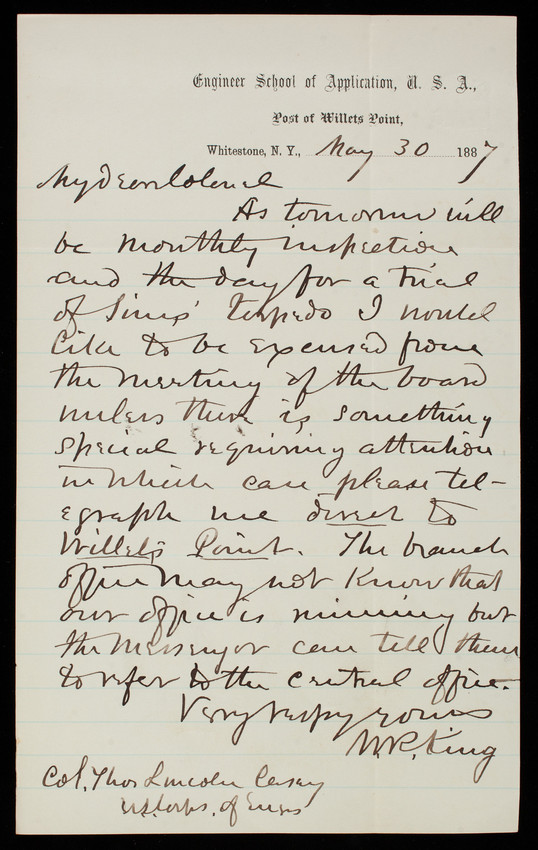 Engineer School of Application, U. S. A.,
Post of Willets Point,
Whitestone, N. Y., May 30 1887
My Dear Colonel
As tomorrow will
be monthly inspection
and the day for a trial
of Sims' torpedo I would
like to be excused from
the meeting of the board
unless there is something
special requiring attention
in which case please tel-
egraph me direct to
Willets Point. The branch
office may not know that
our office is running but
the messenger can tell them
to refer to the central office.
Very respy yours
W.R. King
Col. Thos Lincoln Casey
U.S. Corps. of Engrs